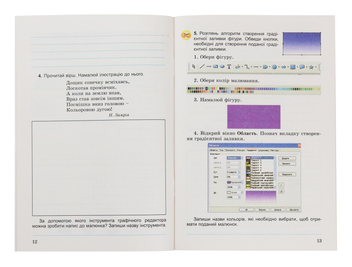 4. Прочитай вірш. Намалюй ілюстрацію до нього.
Дощик сонечку всміхавсь,
Лоскотав промінчик,
А коли на землю впав,
Враз став зовсім іншим.
Посмішка яких
Кольоровою дугою!
За допомогою якого інструмента графічного редактора
можна зробити напис до малюнка? Запиши назву інструмента.
12
5. Розглянь алгоритм створення граді-
єнтної заливки фігури. Обведи кнопки,
необхідні для створення поданої граді-
єнтної заливки.
1. Обери фігуру.
2. Обери колір малювання.
3. Намалюй фігуру.
4. Відкрий вікно Область. Познач вкладку створен-
ня градієнтної заливки.
Запиши назви кольорів, які необхідно вибрати, щоб отри-
мати поданий малюнок.
13